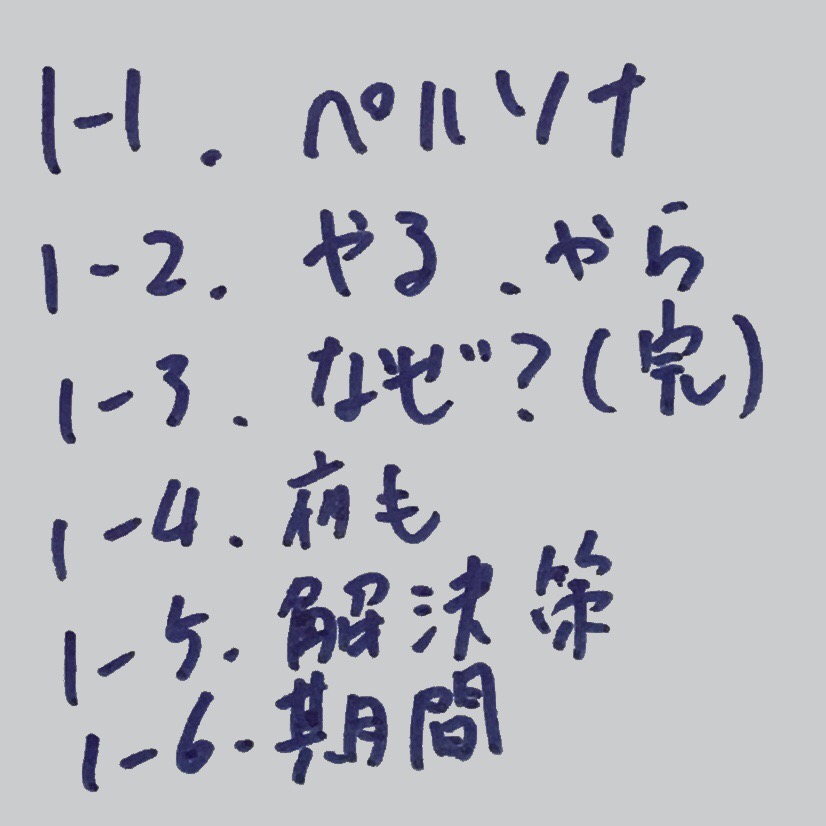 1-1. ペルソナ
1-2. やる.から
1-3. なぜ?(完)
1-4. 病も
1-5. 解決策
1-6. 期間